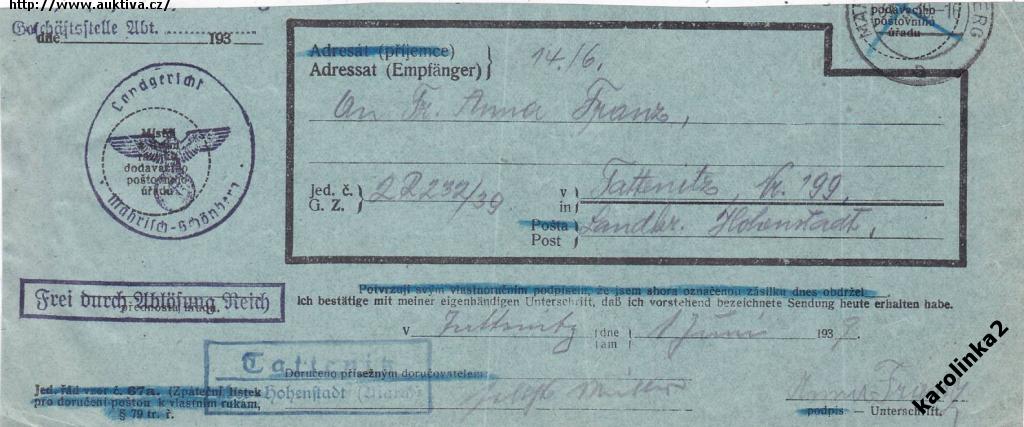 http://www.auktiva.cz/
Geschäftsstelle Abt.
dne 193
Landgericht
Mährisch-Schönberg
dodavacího
poštovního
úřadu
podavacího
poštovního
úřadu
Adresát (příjemce)
Adressat (Empfänger)
14./6.
An Fr. Anna Franz,
jed. č.
G. Z.
2 R 232/39
v
in
Tattenitz, Nr. 199,
Pošta
Post
Landkr. Hohenstadt,
Frei durch Ablösung Reich
přednosta
Potvrzuji svým vlastnoručním podpisem, že jsem shora označenou zásilku dnes obdržel
Ich bestätige mit meiner eigenhändigen Unterschrift, daß ich vorstehend bezeichnete Sendung heute erhalten habe.
v Tattenitz dne
am Juni 1939
Doručeno přísežným doručovatelem
Hohenstadt
Jed. řád vzor č. 67a. (Zpáteční lístek
pro doručení poštou k vlastním rukám,
§ 79 tr. ř.
Müller
Anna Franz
podpis — Unterschrift.
karolinka2